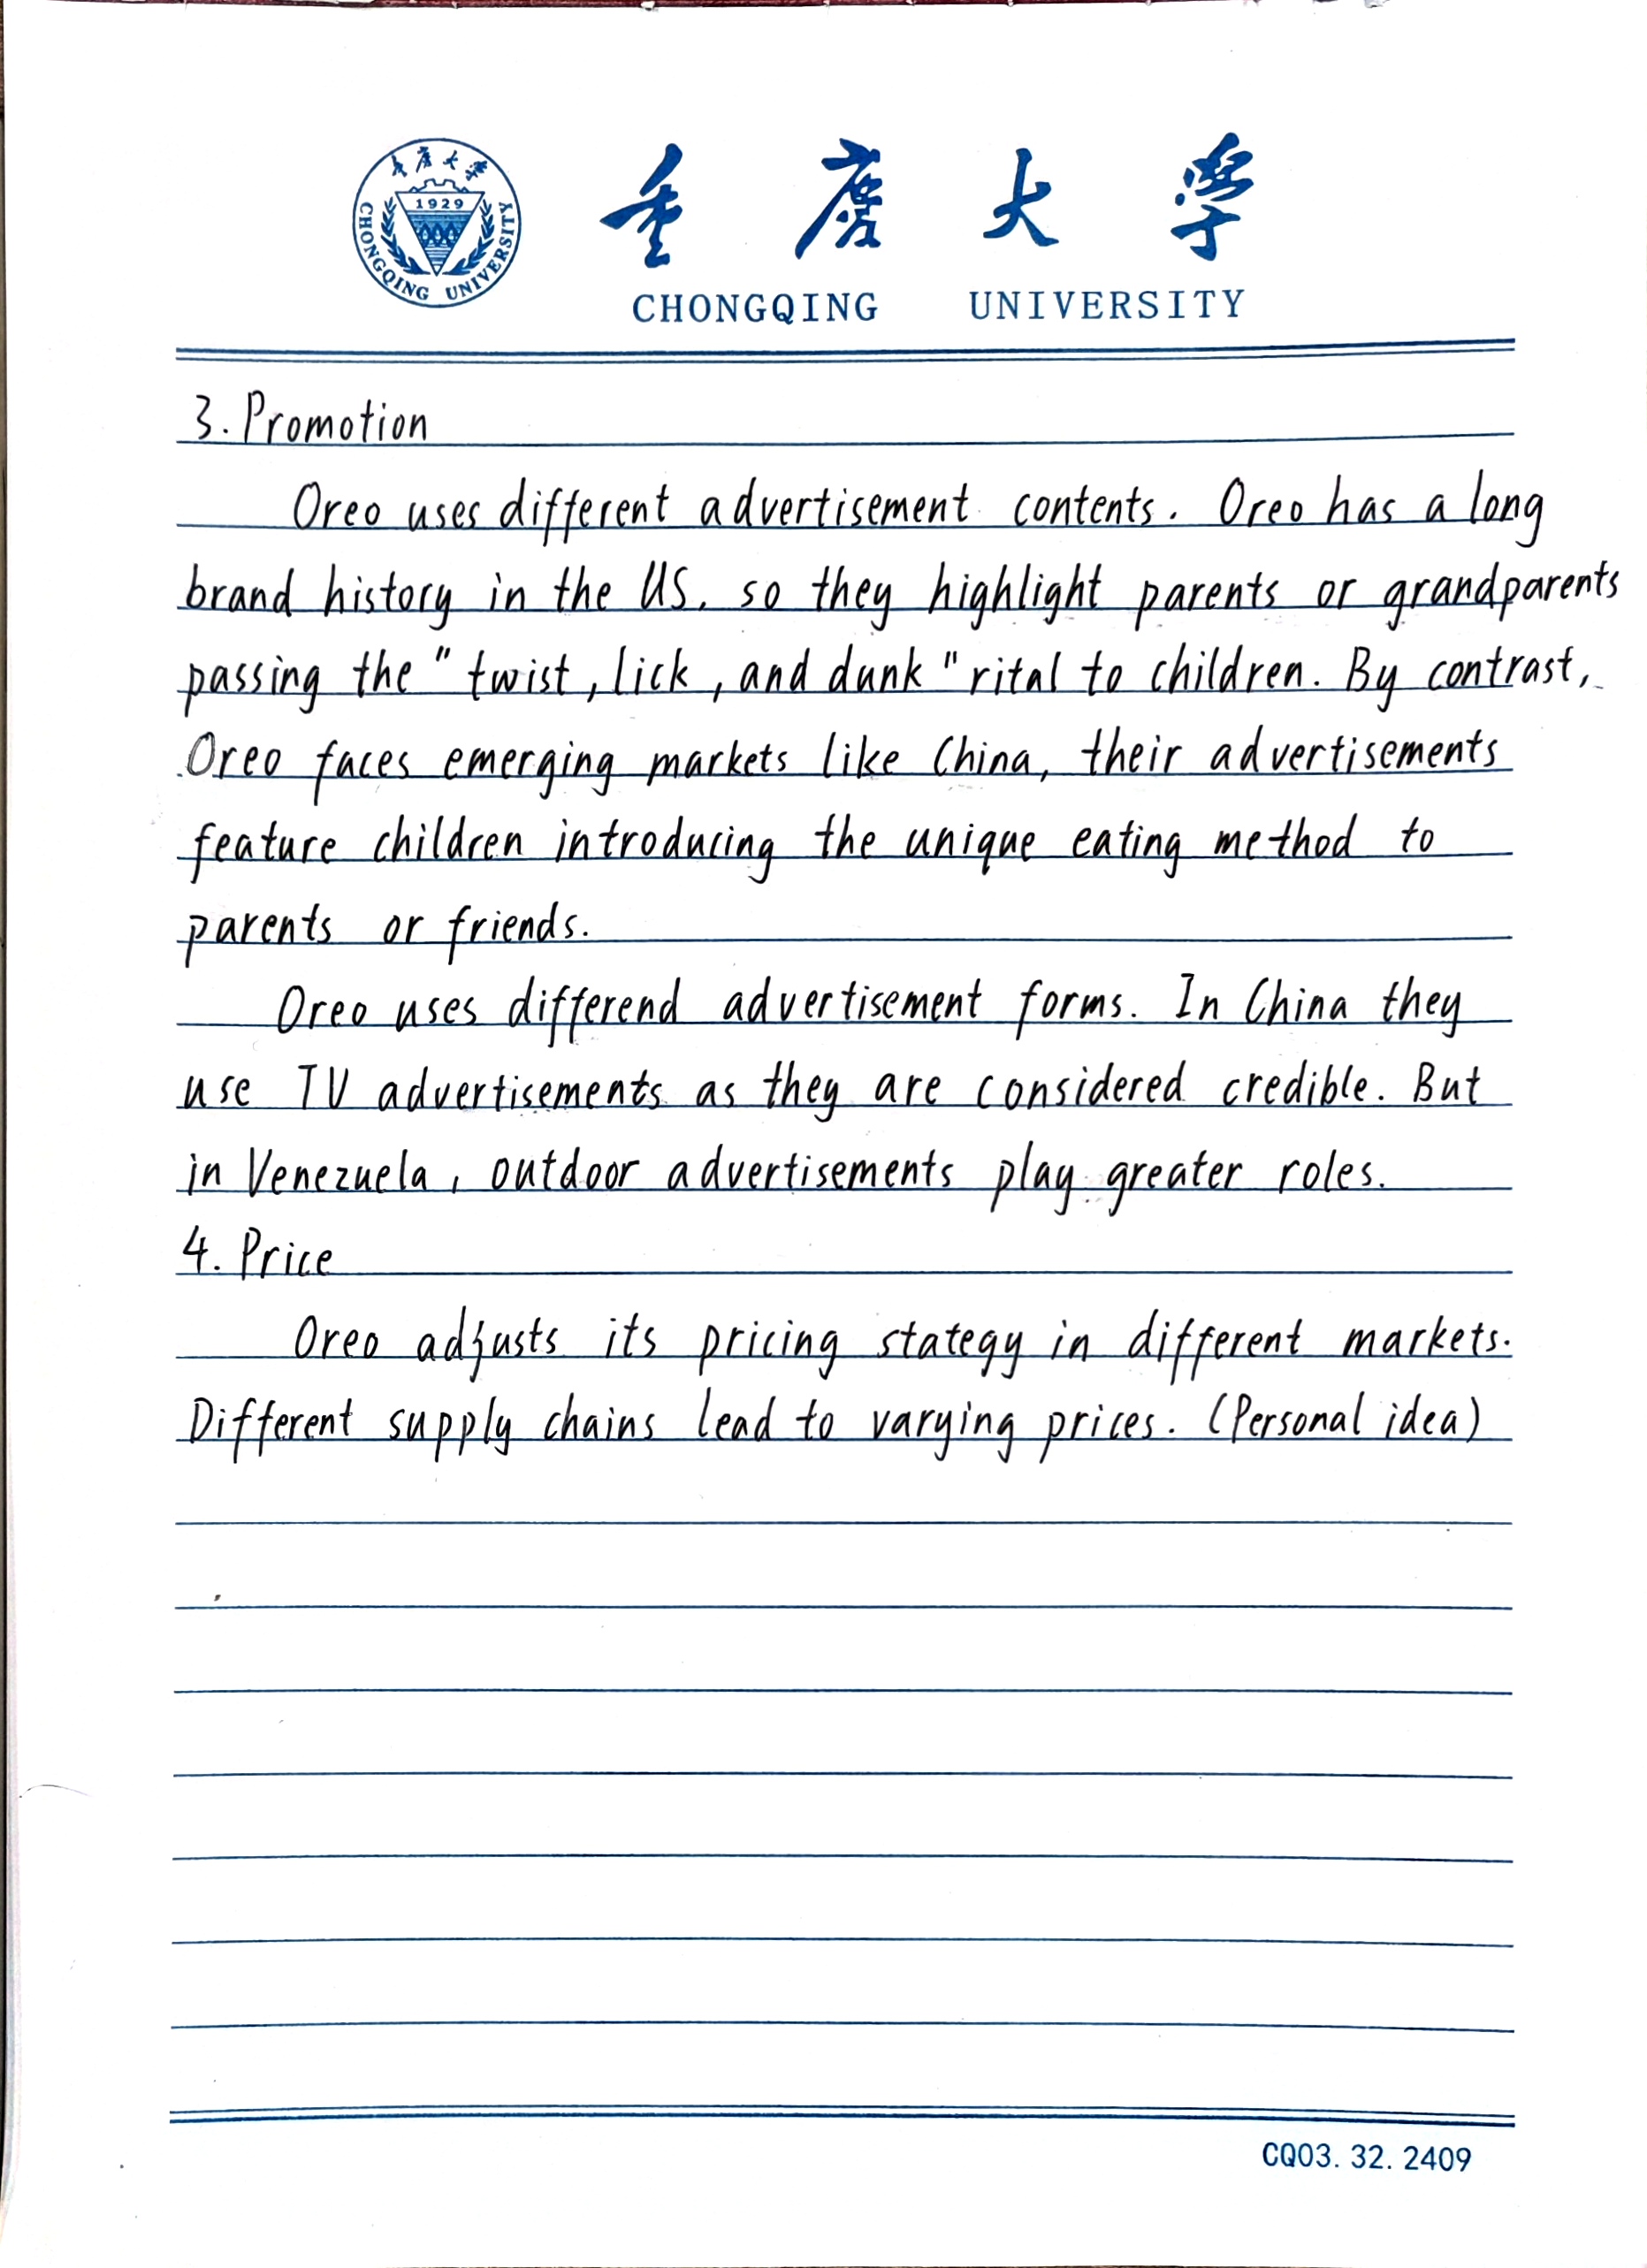 重庆大学
1929
CHONGQING UNIVERSITY
重庆大学
CHONGQING UNIVERSITY
3. Promotion
Oreo uses different advertisement contents. Oreo has a long
brand history in the US, so they highlight parents or grandparents
passing the "twist, lick, and dunk" rital to children. By contrast,
Oreo faces emerging markets like China, their advertisements
feature children introducing the unique eating method to
parents or friends.
Oreo uses differend advertisement forms. In China they
use TV advertisements as they are considered credible. But
in Venezuela, outdoor advertisements play greater roles.
4. Price
Oreo adjusts its pricing stategy in different markets.
Different supply chains lead to varying prices. (Personal idea)
CQ03. 32. 2409